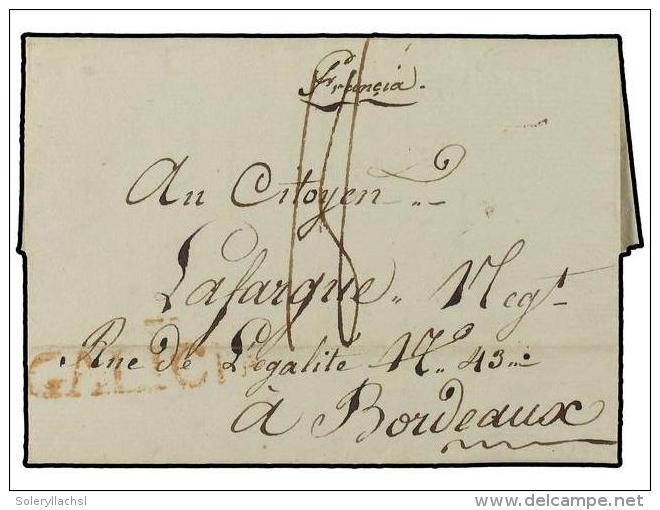 Francia.
Au Citoyen
Lafargue, Negt
GALICIA
Rue de L'égalité No. 43
à Bordeaux
Soleryllachsl
© delcampe.net